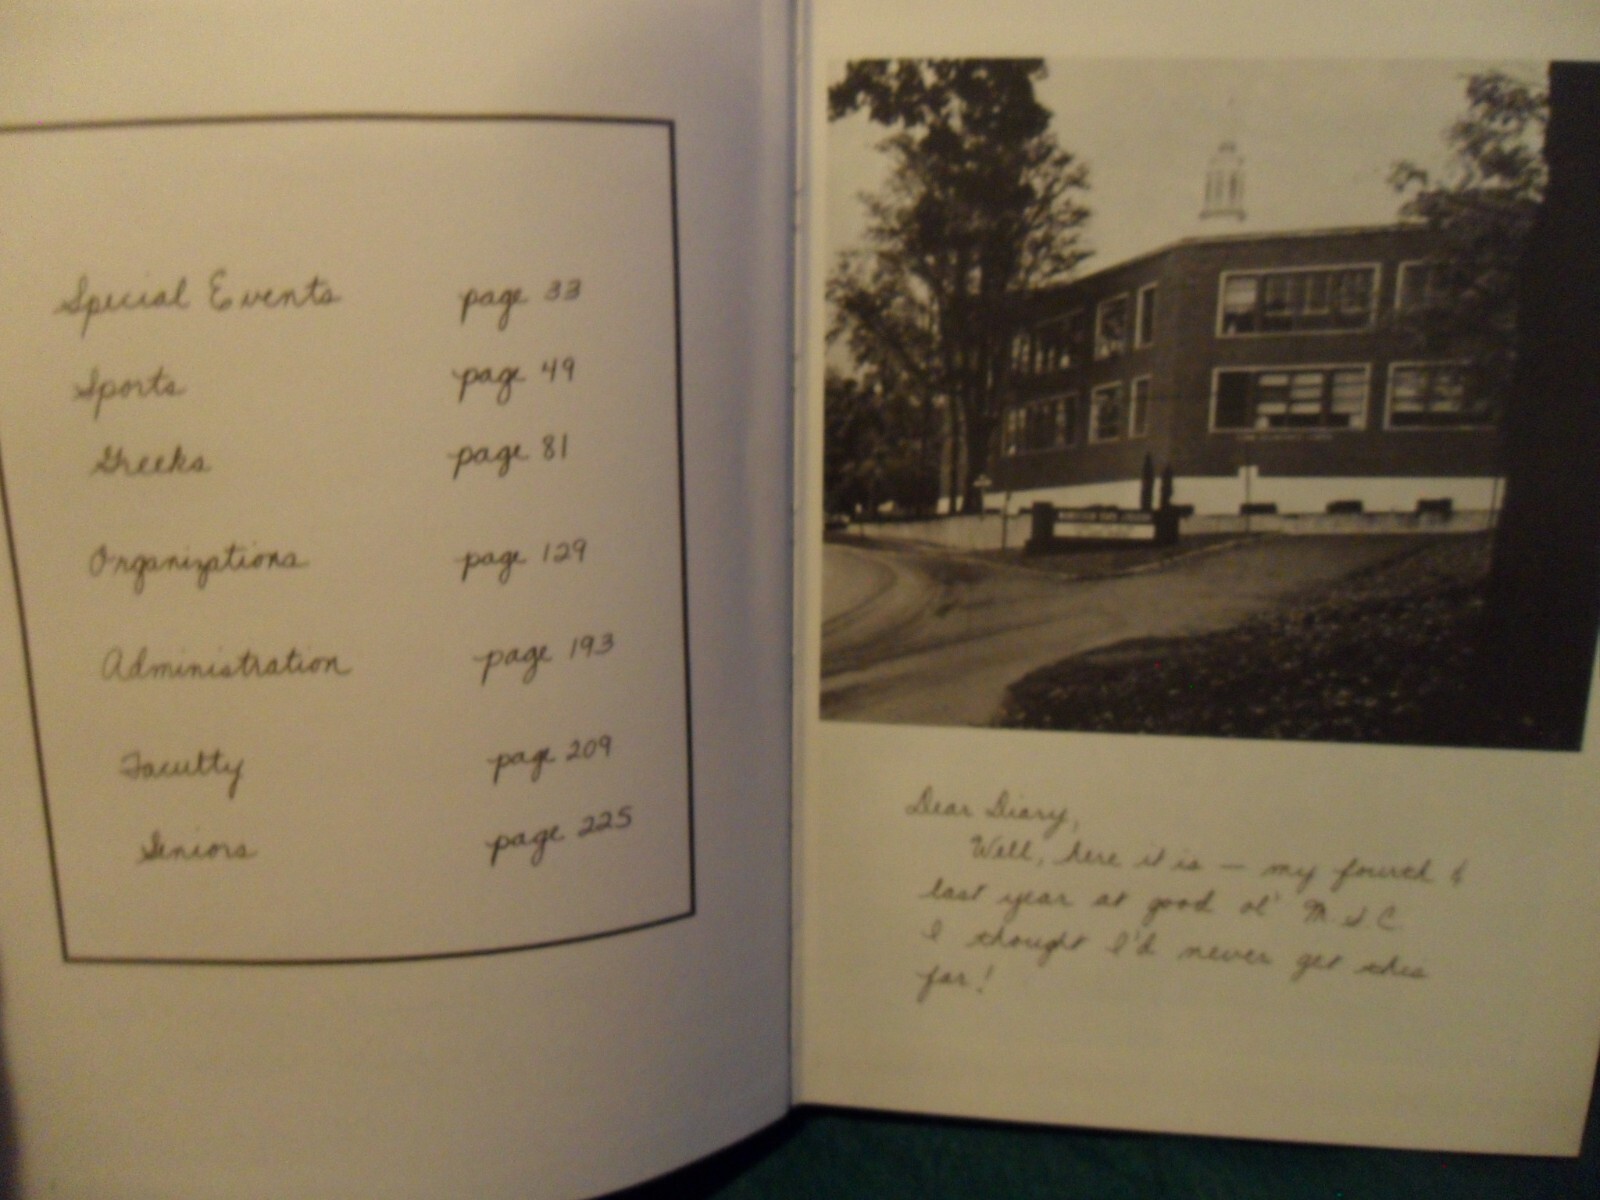 Special Events page 33
Sports page 49
Greeks page 81
Organizations page 129
Administration page 193
Faculty page 209
Seniors page 225
Dear Diary,
Well, here it is — my fourth &
last year at good ol' M.S.C.
I thought I'd never get this
far!